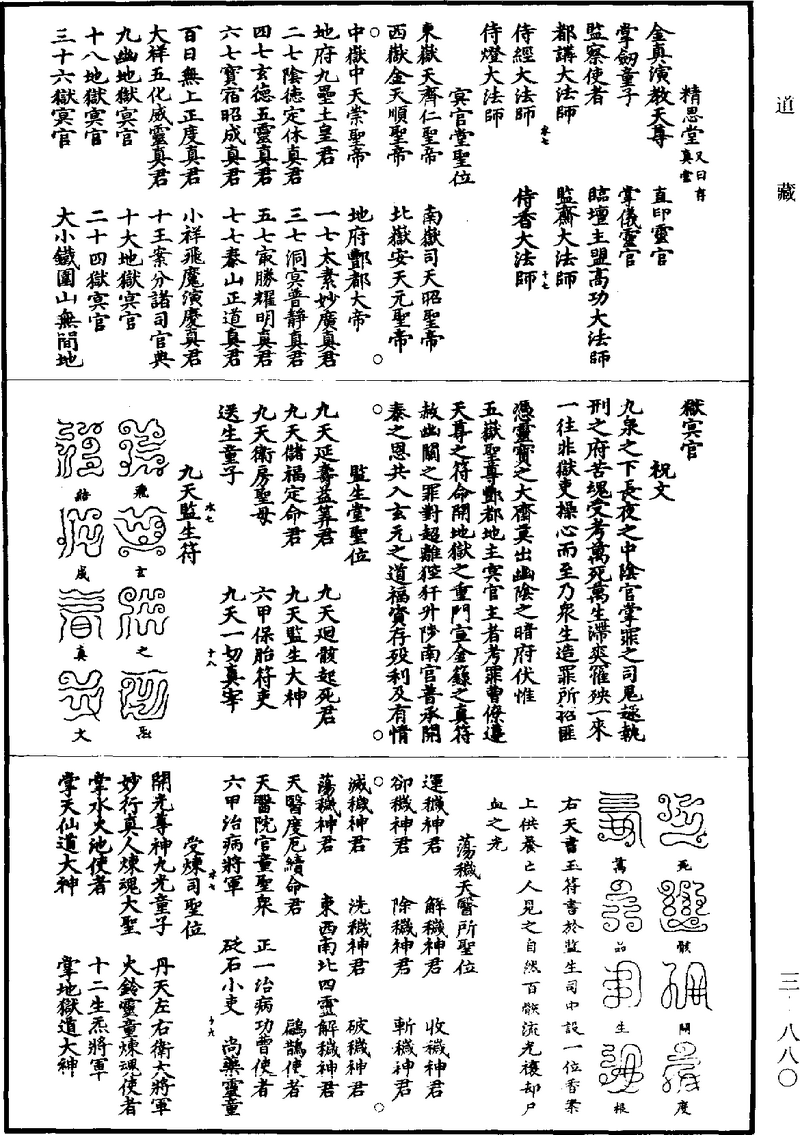 道藏
精思堂又曰存真堂
金真演教天尊　直印靈官
掌劒童子　掌儀靈官
監察使者　臨壇主盟高功大法師
都講大法師　監齋大法師
侍經大法師　侍香大法師
侍燈大法師
冥官堂聖位
東嶽天齊仁聖帝　南嶽司天昭聖帝
西嶽金天順聖帝　北嶽安天元聖帝
中嶽中天崇聖帝　地府酆都大帝
地府九壘土皇君　一七太素妙廣真君
二七陰德定休真君　三七洞冥普靜真君
四七玄德五靈真君　五七最勝耀明真君
六七寶宿昭成真君　七七泰山正道真君
百日無上正度真君　小祥飛魔演慶真君
大祥五化威靈真君　十王案分諸司官典
九幽地獄冥官　十大地獄冥官
十八地獄冥官　二十四獄冥官
三十六獄冥官　大小鐵圍山無間地
獄冥官
祝文
九泉之下長夜之中陰官掌罪之司鬼趣執
刑之府苦魂受考萬死萬生滯爽罹殃一來
一往非獄吏操心而至乃眾生造罪所招匪
憑靈寶之大齋莫出幽陰之暗府伏惟
五嶽聖尊酆都地主冥官主者考罪曹僚遵
天尊之符命開地獄之重門宣金籙之真符
赦幽關之罪對超離狴犴升陟南宮普承開
泰之恩共入玄元之道福資存歿利及有情
監生堂聖位
九天延壽益算君　九天迴骸起死君
九天儲福定命君　九天監生大神
九天衛房聖母　六甲保胎符吏
送生童子　九天一切真宰
九天監生符
飛　玄　之　炁
結　成　真　文
死　骸　開　度
萬　品　生　根
右天書玉符書於監生司中設一位香案
上供養亡人見之自然百骸流光復却尸
血之光
蕩穢天醫所聖位
運穢神君　解穢神君　收穢神君
卻穢神君　除穢神君　斬穢神君
滅穢神君　洗穢神君　破穢神君
蕩穢神君　東西南北四靈解穢神君
天醫度厄續命君　鷗鵲使者
天醫院官童聖衆　正一治病功曹使者
六甲治病將軍　砭石小吏　尚藥靈童
受煉司聖位
開光尊神九光童子　丹天左右衛大將軍
妙行真人煉魂大聖　火鈴靈童煉魂使者
掌水火池使者　十二生炁將軍
掌天仙道大神　掌地獄道大神
三·八八〇